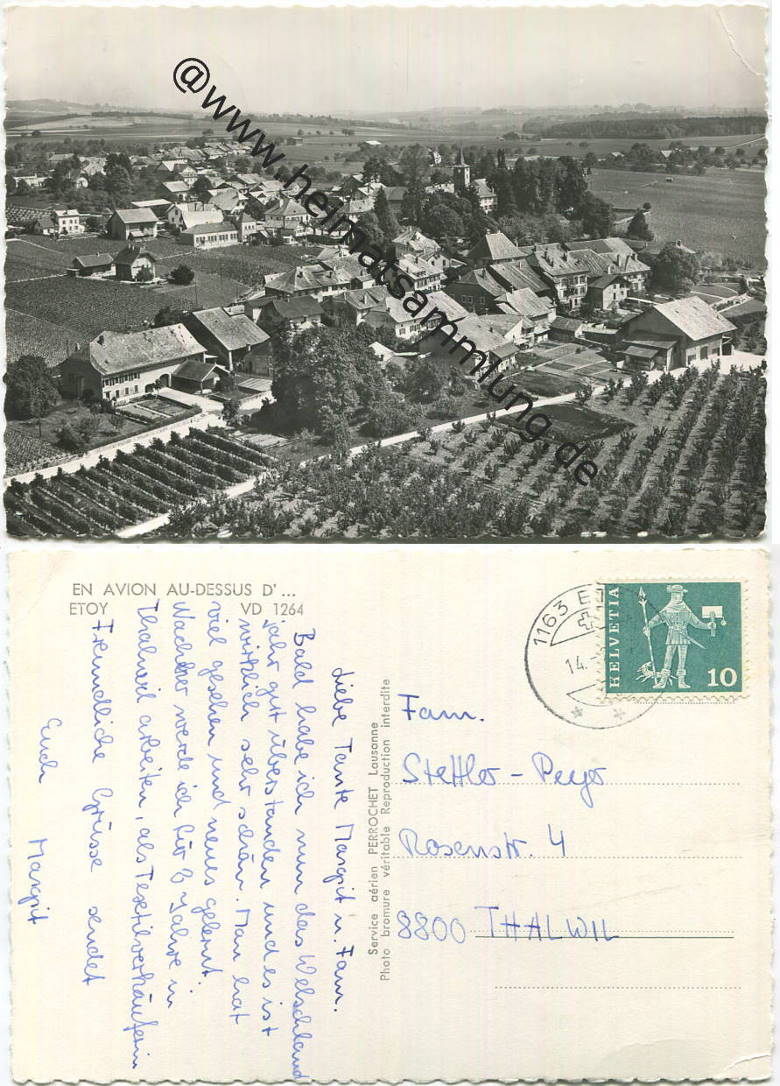 @www.heimatsammlung.de
EN AVION AU-DESSUS D'...
ETOY VD 1264
Liebe Tante Margit u. Fam.
Bald habe ich nun das Welschland
jahr gut überstanden und es ist
wirklich sehr schön. Man hat
viel gesehen und neues gelernt.
Nachher werde ich für 2 Jahre in
Thalwil arbeiten, als Textilverkäuferin
Freundliche Grüsse sendet
Euch Margit
Service aérien PERROCHET Lausanne
Photo bromure véritable Reproduction interdite
1163
14.
HELVETIA
10
Fam.
Stettler-Peyer
Rosenstr. 4
8800 THALWIL